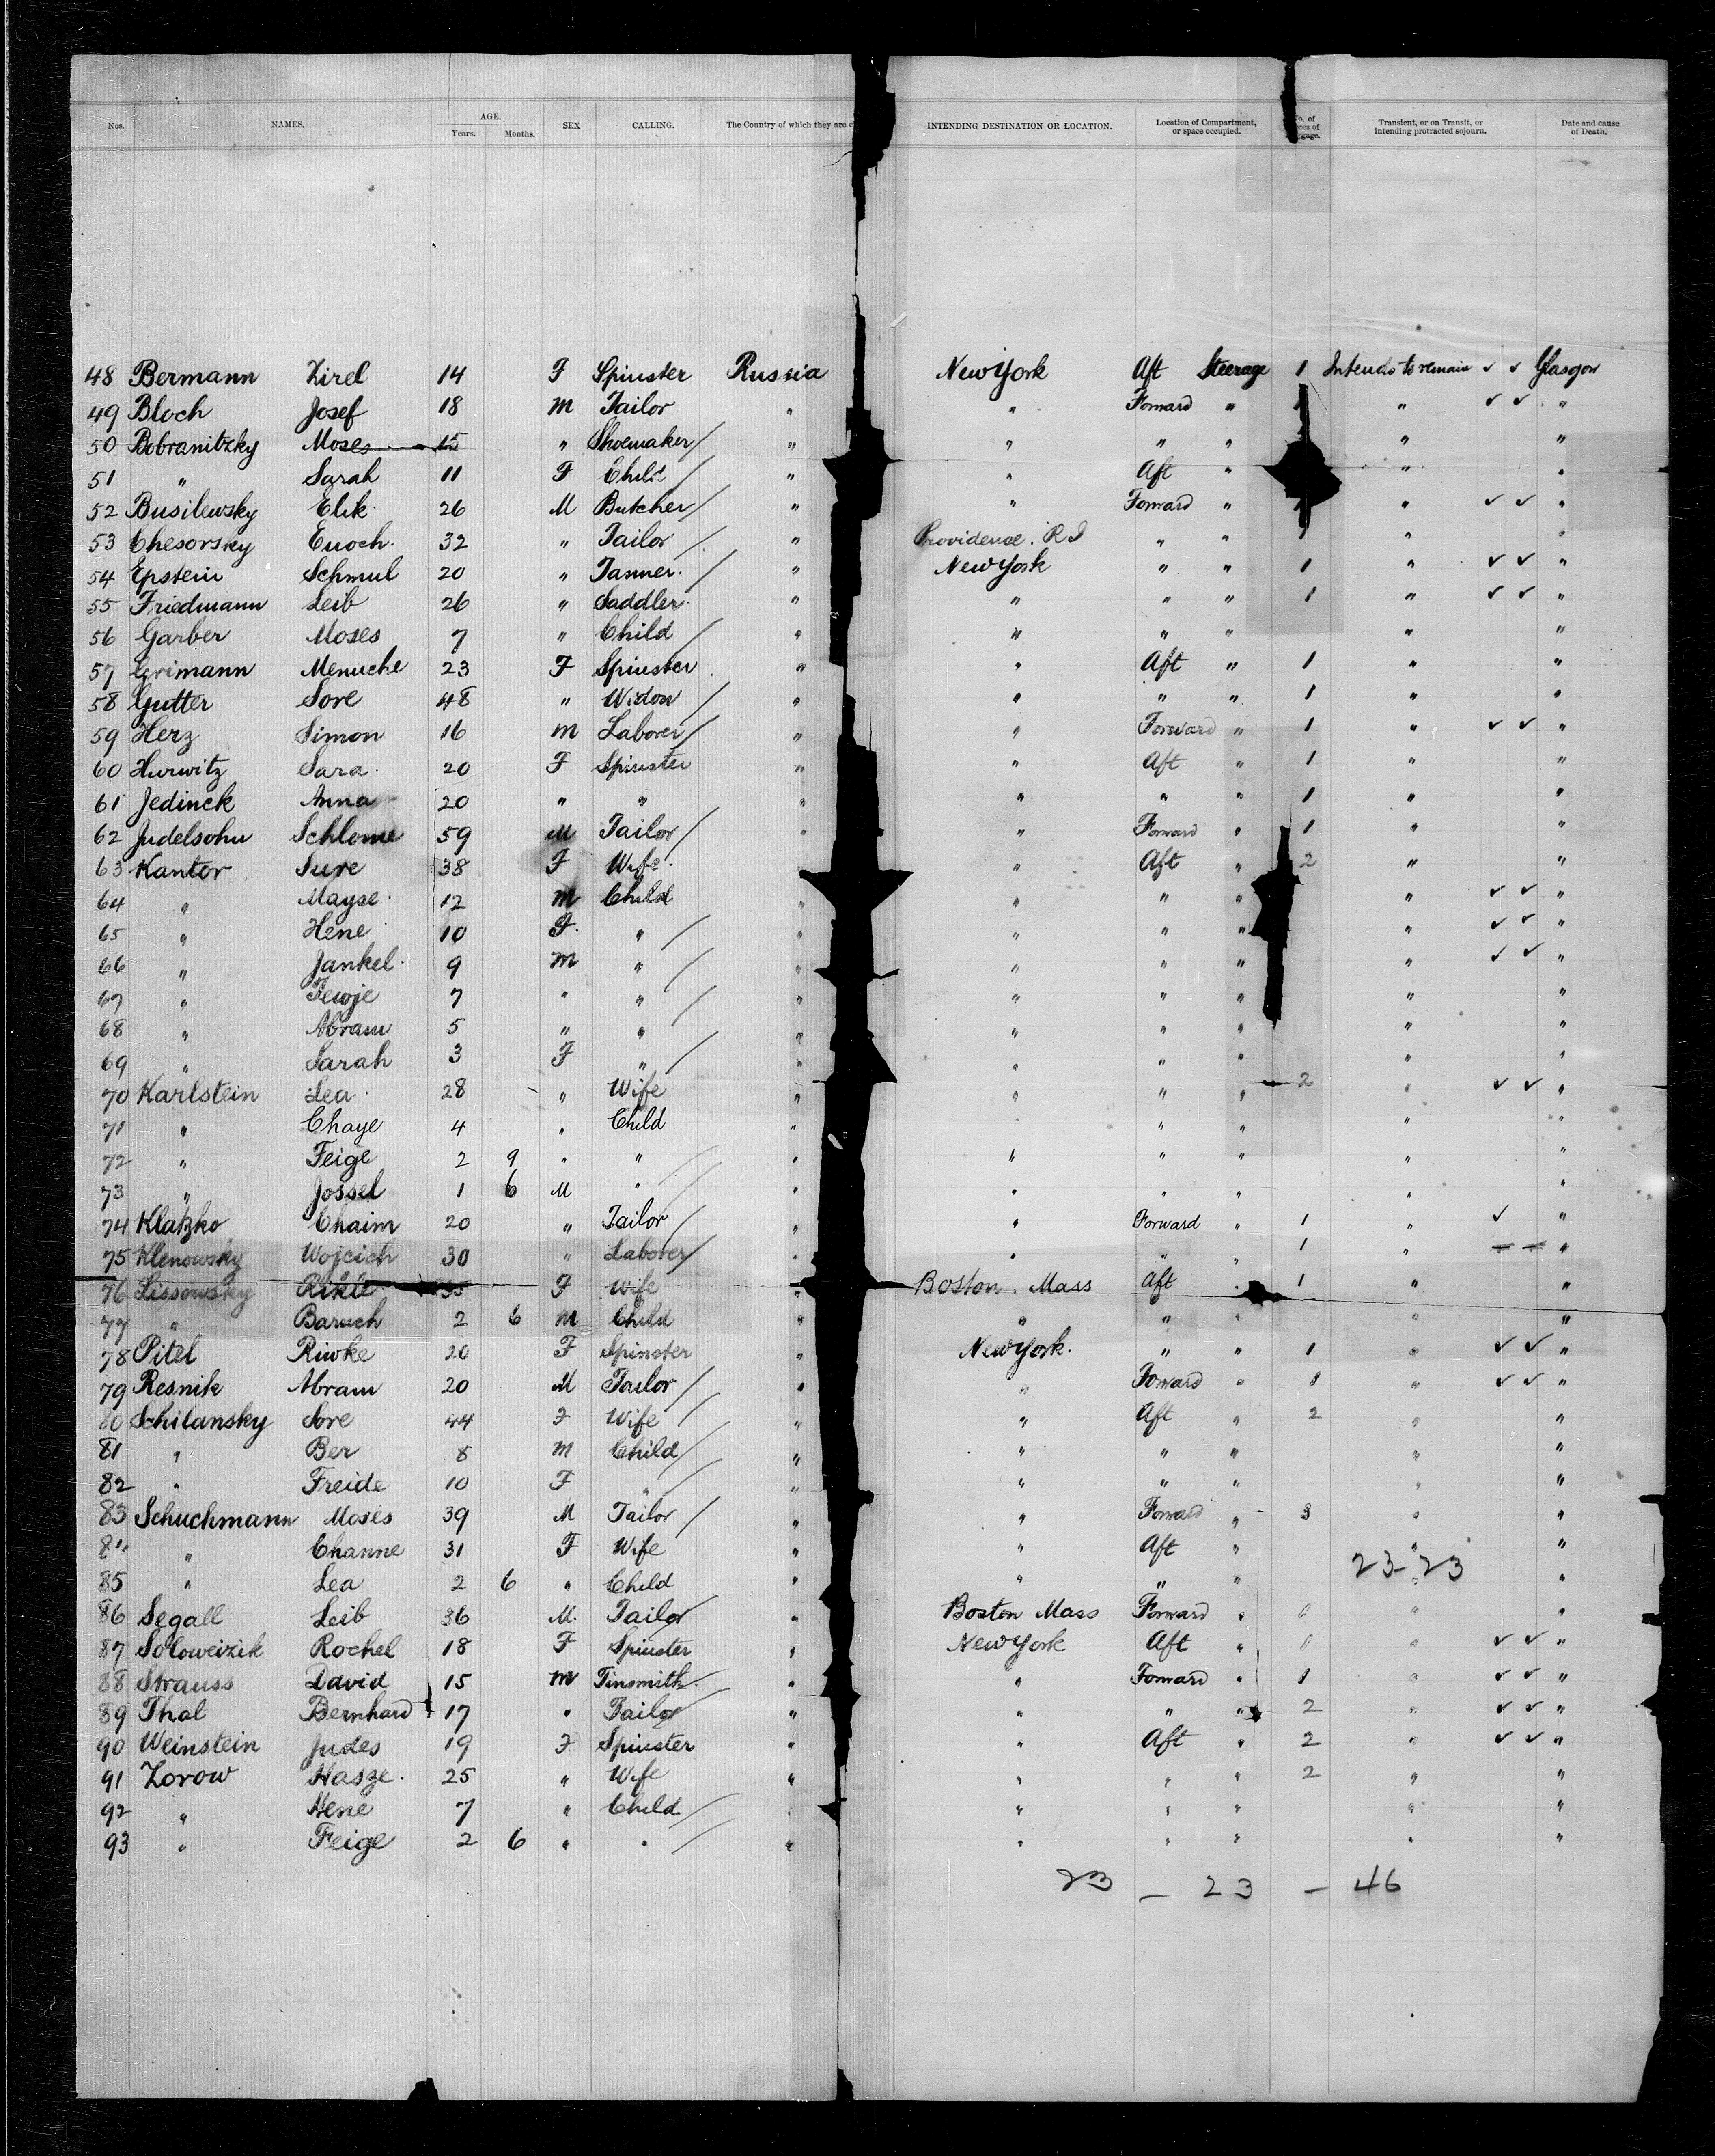 Nos. NAMES. AGE. Years. Months. SEX CALLING. The Country of which they are c INTENDING DESTINATION OR LOCATION. Location of Compartment, or space occupied. Transient, or on Transit, or intending protracted sojourn. Date and cause of Death.
48 Bermann Zirel 14 F Spinster Russia New York Aft Steerage 1 Intends to remain ✓ ✓ Glasgow
49 Bloch Josef 18 M Tailor " " Forward " 1 " ✓ ✓ "
50 Bobranitzky Moses 15 " Shoemaker / " " " " " "
51 " Sarah 11 F Child / " " Aft " " "
52 Busilewsky Elik 26 M Butcher / " " Forward " " ✓ ✓ "
53 Chesorsky Enoch. 32 " Tailor / " Providence. R I " " 1 " "
54 Epstein Schmul 20 " Tanner. / " New York " " 1 " ✓ ✓ "
55 Friedmann Leib 26 " Saddler. " " " " 1 " ✓ ✓ "
56 Garber Moses 7 " Child / " " " " " "
57 Grimann Menuche 23 F Spinster " " Aft " 1 " "
58 Gutter Sore 48 " Widow / " " " " 1 " "
59 Herz Simon 16 M Laborer / " " Forward " 1 " ✓ ✓ "
60 Hurwitz Sara. 20 F Spinster " " Aft " 1 " "
61 Jedinck Anna 20 " " " " " " 1 " "
62 Judelsohn Schlome 59 M Tailor / " " Forward " 1 " "
63 Kantor Sure 38 F Wife. " " Aft " 2 " "
64 " Mayse. 12 M Child " " " " " ✓ ✓ "
65 " Hene 10 F. " / " " " " " ✓ ✓ "
66 " Jankel. 9 M " / " " " " " ✓ ✓ "
67 " Tewje 7 " " / " " " " " "
68 " Abram 5 " " " " " " " "
69 " Sarah 3 F " / " " " " " "
70 Karlstein Lea. 28 " Wife " " " " 2 " ✓ ✓ "
71 " Chaye 4 " Child " " " " "
72 " Feige 2 9 " " / " " " " " "
73 " Jossel 1 6 M " / " " " " " "
74 Klatzko Chaim 20 " Tailor / " " Forward " 1 " ✓ "
75 Klenowsky Wojcich 30 " Laborer / " " " " 1 " "
76 Lissowsky Rikle 35 F Wife " Boston. Mass Aft " 1 " "
77 " Baruch 2 6 M Child " " " " " "
78 Pitel Riwke 20 F Spinster " New York. " " 1 " ✓ ✓ "
79 Resnik Abram 20 M Tailor / " " Forward " 1 " ✓ ✓ "
80 Schilansky Sore 44 F Wife / " " Aft " 2 " "
81 " Ber 8 M Child / " " " " " "
82 " Freide 10 F " / " " " " " "
83 Schuchmann Moses 39 M Tailor / " " Forward " 3 " "
" Channe 31 F Wife " " Aft " " "
23-23
85 " Lea 2 6 " Child " " " " " "
86 Segall Leib 36 M. Tailor " Boston Mass Forward " " " "
87 Soloweizik Rochel 18 F Spinster " New York Aft " " " ✓ ✓ "
88 Strauss David 15 M Tinsmith " " Forward " 1 " ✓ ✓ "
89 Thal Bernhard 17 " Tailor " " " " 2 " ✓ ✓ "
90 Weinstein Judes 19 F Spinster " " Aft " 2 " ✓ ✓ "
91 Zorow Hasze. 25 " Wife " " " " 2 " "
92 " Hene 7 " Child / " " " " " "
93 " Feige 2 6 " " / " " " " " "
23 - 23 - 46